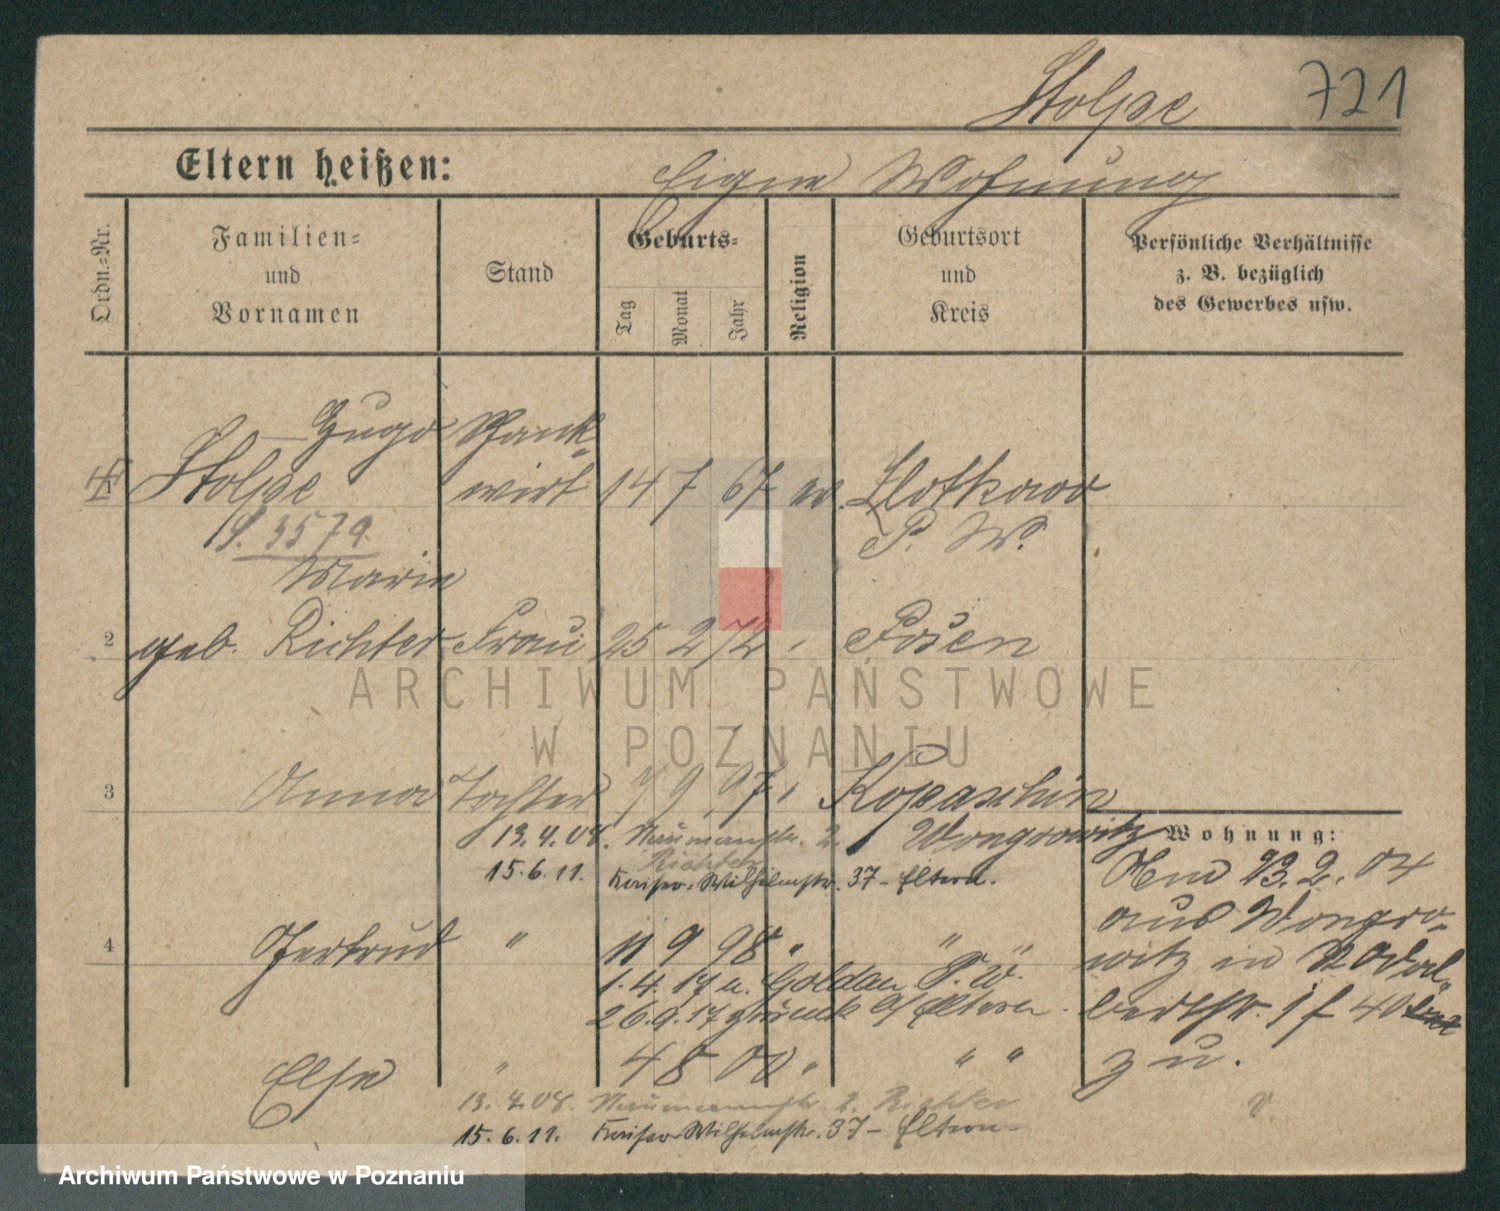 Stolpe 721
Eltern heißen: Eigene Wohnung
Ordn.-Nr.
Familien-
und
Vornamen
Stand
Geburts-
Tag
Monat
Jahr
Religion
Geburtsort
und
Kreis
Persönliche Verhältnisse
z. B. bezüglich
des Gewerbes usw.
Hugo Schank-
Stolpe wirt 14 7 67 ev. Zlotkowo
S. 3579 P. W.
Marie
2 geb. Richter Frau 25 2 72 " Posen
ARCHIWUM PAŃSTWOWE
W POZNANIU
3 Anna Tochter 7 9 97 " Kopaschin
13.4.08. Naumannstr. 2. Wongrowitz
Richter
15.6.11. Kaiser-Wilhelmstr. 37 - Eltern.
Wohnung:
Am 23.2.04
aus Wongro-
witz in Adal-
bertstr. 1 f 40
zu.
4 Gertrud " 11 9 98 " " "
1.4.17 n. Goldau P. W.
26.9.17 zurück b/ Eltern.
Else " 4 8 00 " " "
13.4.08. Naumannstr. 2. Richter
15.6.11. Kaiser-Wilhelmstr. 37 - Eltern.
Archiwum Państwowe w Poznaniu